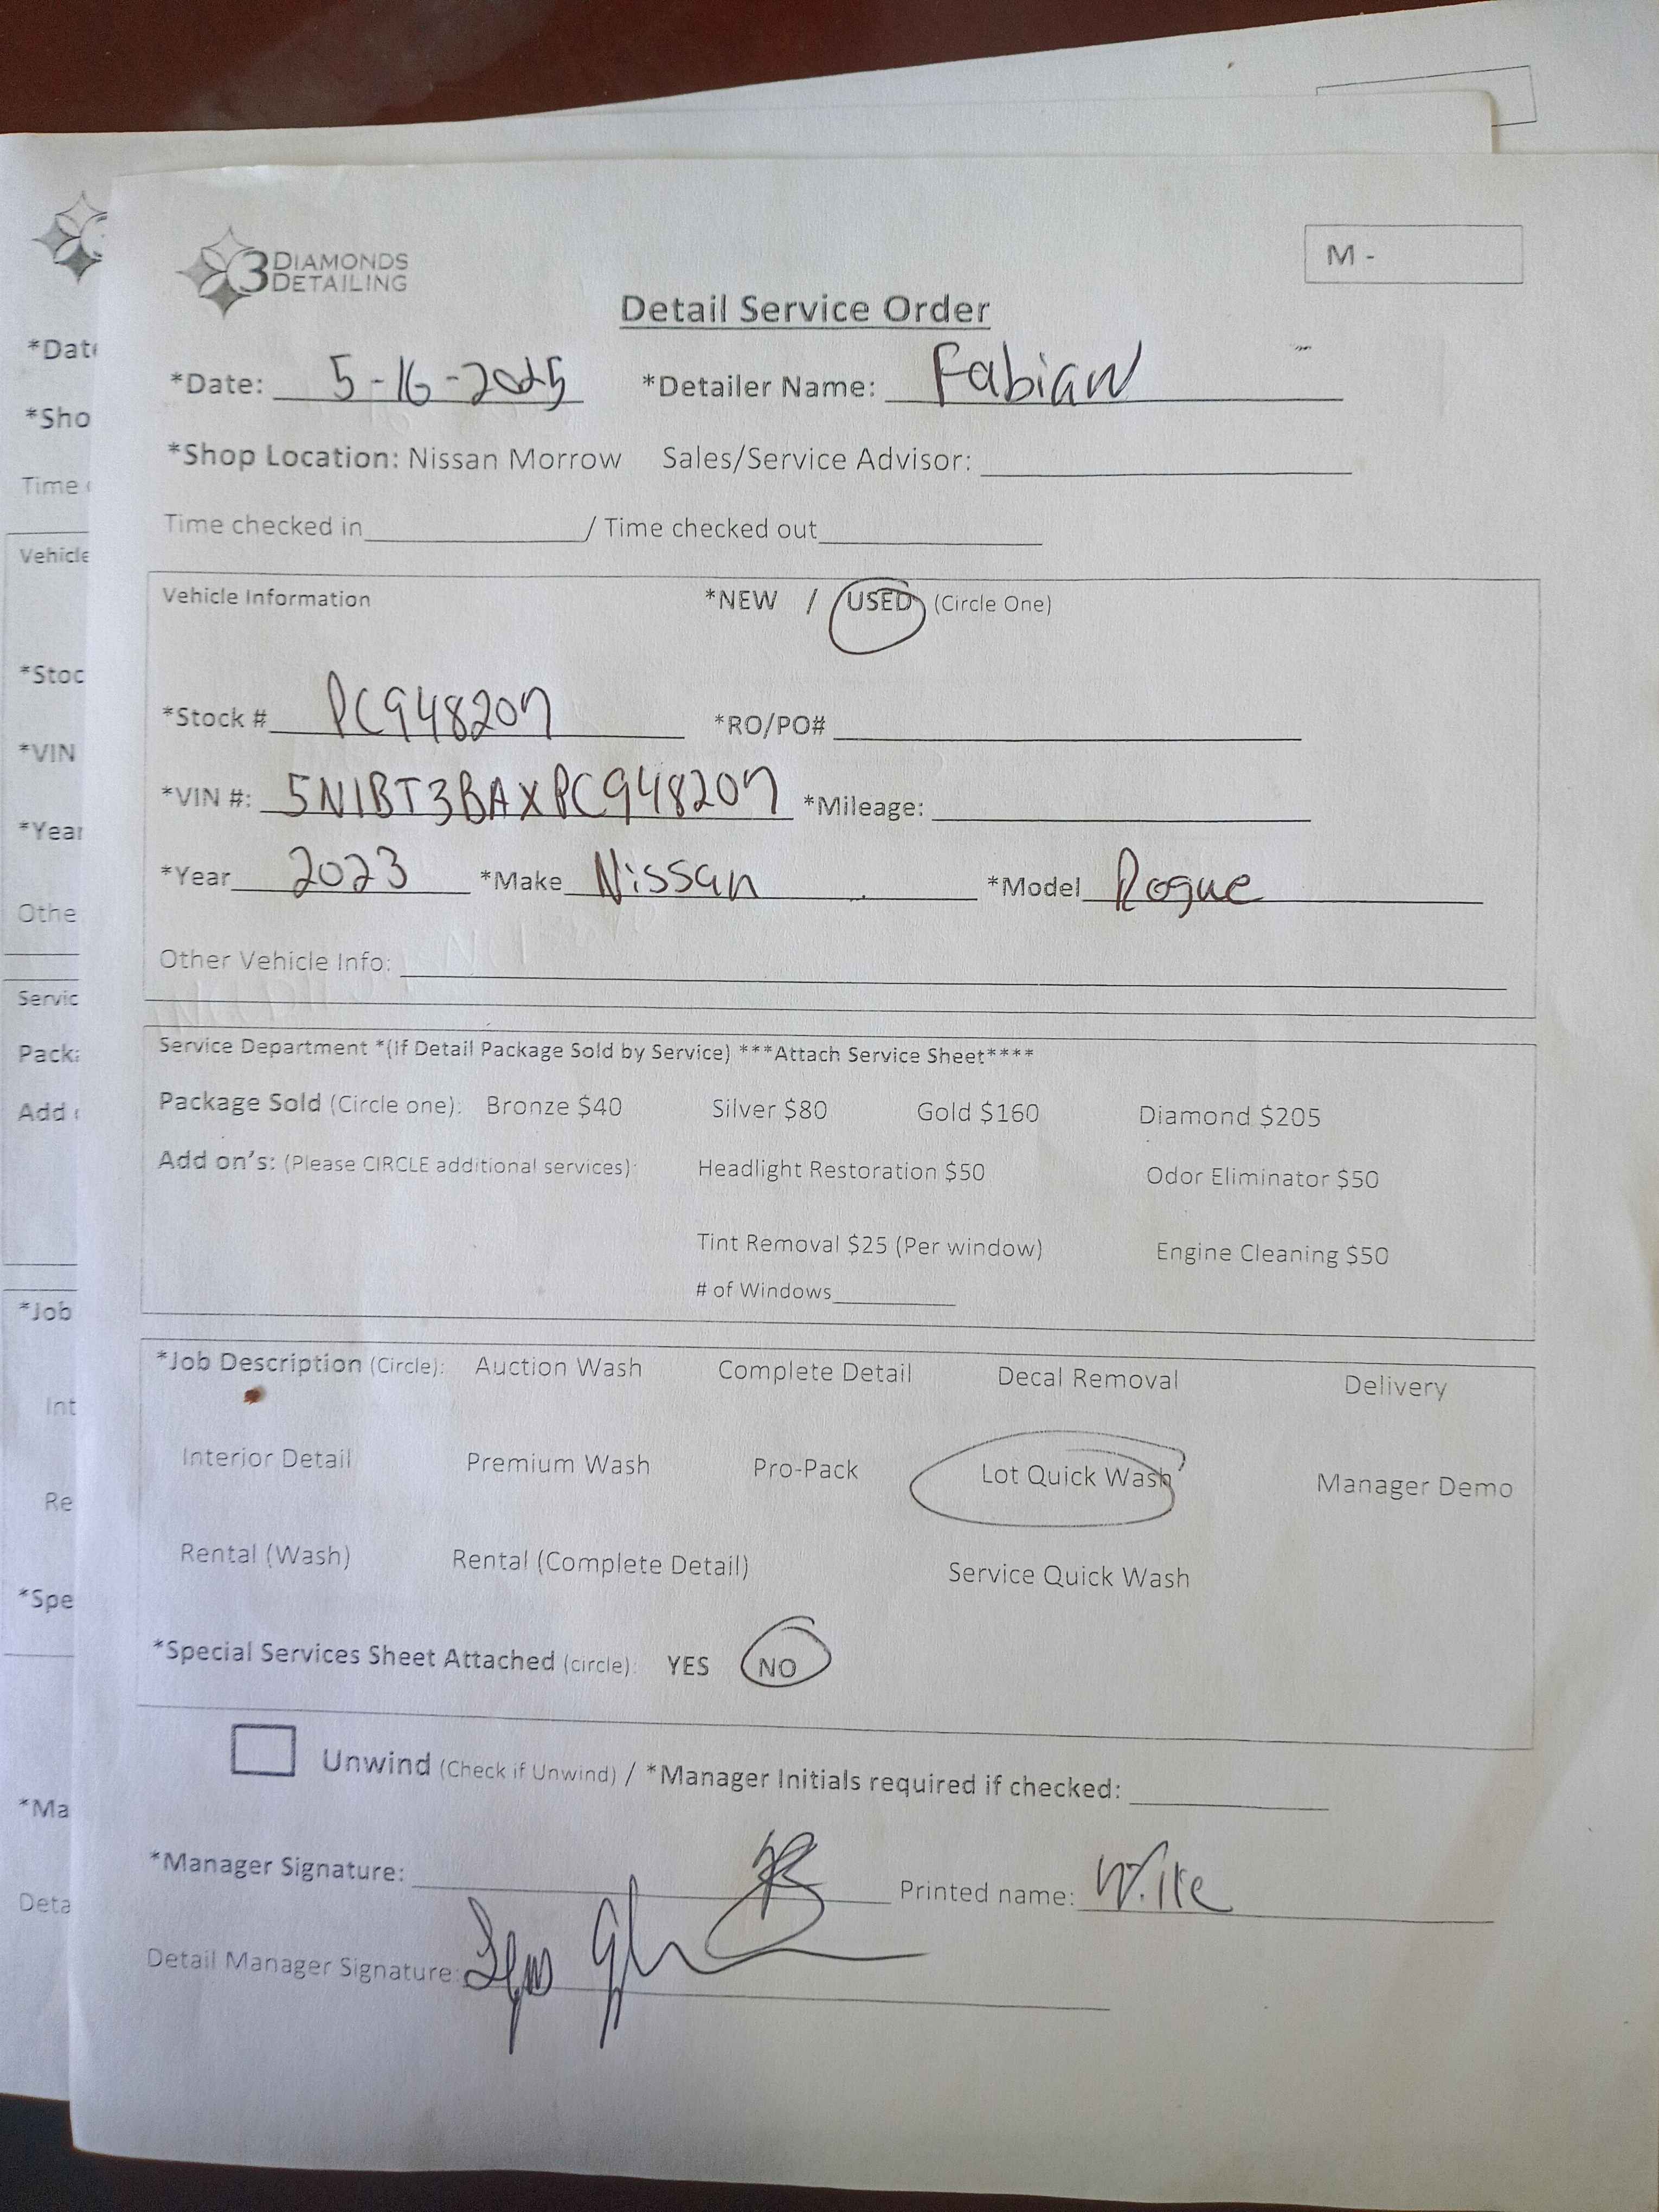 3 DIAMONDS
DETAILING
M -
Detail Service Order
*Date: 5-16-2025 *Detailer Name: Fabian
*Shop Location: Nissan Morrow Sales/Service Advisor:
Time checked in / Time checked out
Vehicle Information *NEW / USED (Circle One)
*Stock # PC948207 *RO/PO#
*VIN #: 5N1BT3BAXPC948207 *Mileage:
*Year 2023 *Make Nissan *Model Rogue
Other Vehicle Info:
Service Department *(If Detail Package Sold by Service) ***Attach Service Sheet****
Package Sold (Circle one): Bronze $40 Silver $80 Gold $160 Diamond $205
Add on's: (Please CIRCLE additional services): Headlight Restoration $50 Odor Eliminator $50
Tint Removal $25 (Per window) Engine Cleaning $50
# of Windows
*Job Description (Circle): Auction Wash Complete Detail Decal Removal Delivery
Interior Detail Premium Wash Pro-Pack Lot Quick Wash Manager Demo
Rental (Wash) Rental (Complete Detail) Service Quick Wash
*Special Services Sheet Attached (circle): YES NO
Unwind (Check if Unwind) / *Manager Initials required if checked:
*Manager Signature: Printed name:
Detail Manager Signature:
*Date
*Sho
Time
Vehicle
*Stoc
*VIN
*Year
Othe
Servic
Pack
Add
*Job
Int
Re
*Spe
*Ma
Deta